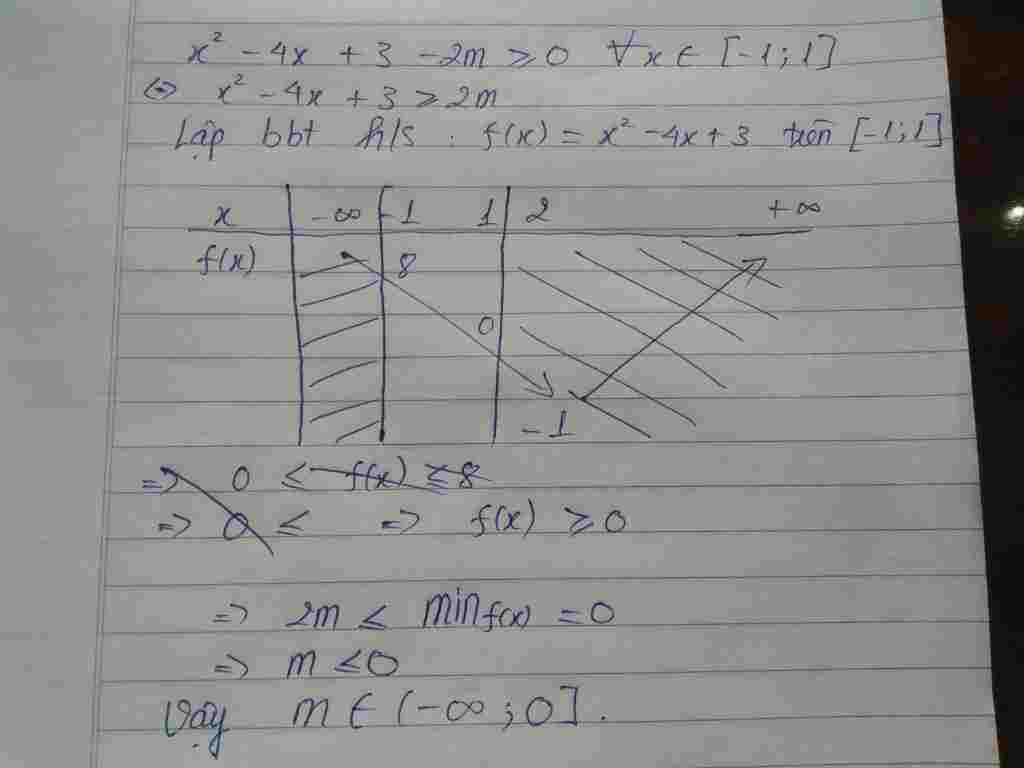 x² - 4x + 3 - 2m ≥ 0 ∀x ∈ [-1;1]
⇔ x² - 4x + 3 ≥ 2m
Lập bbt h/s : f(x) = x² - 4x + 3 trên [-1;1]
x -∞ -1 1 2 +∞
f(x) 8
0
-1
=> 0 ≤ f(x) ≤ 8
=> 0 ≤ => f(x) ≥ 0
=> 2m ≤ min f(x) = 0
=> m ≤ 0
Vậy m ∈ (-∞; 0].